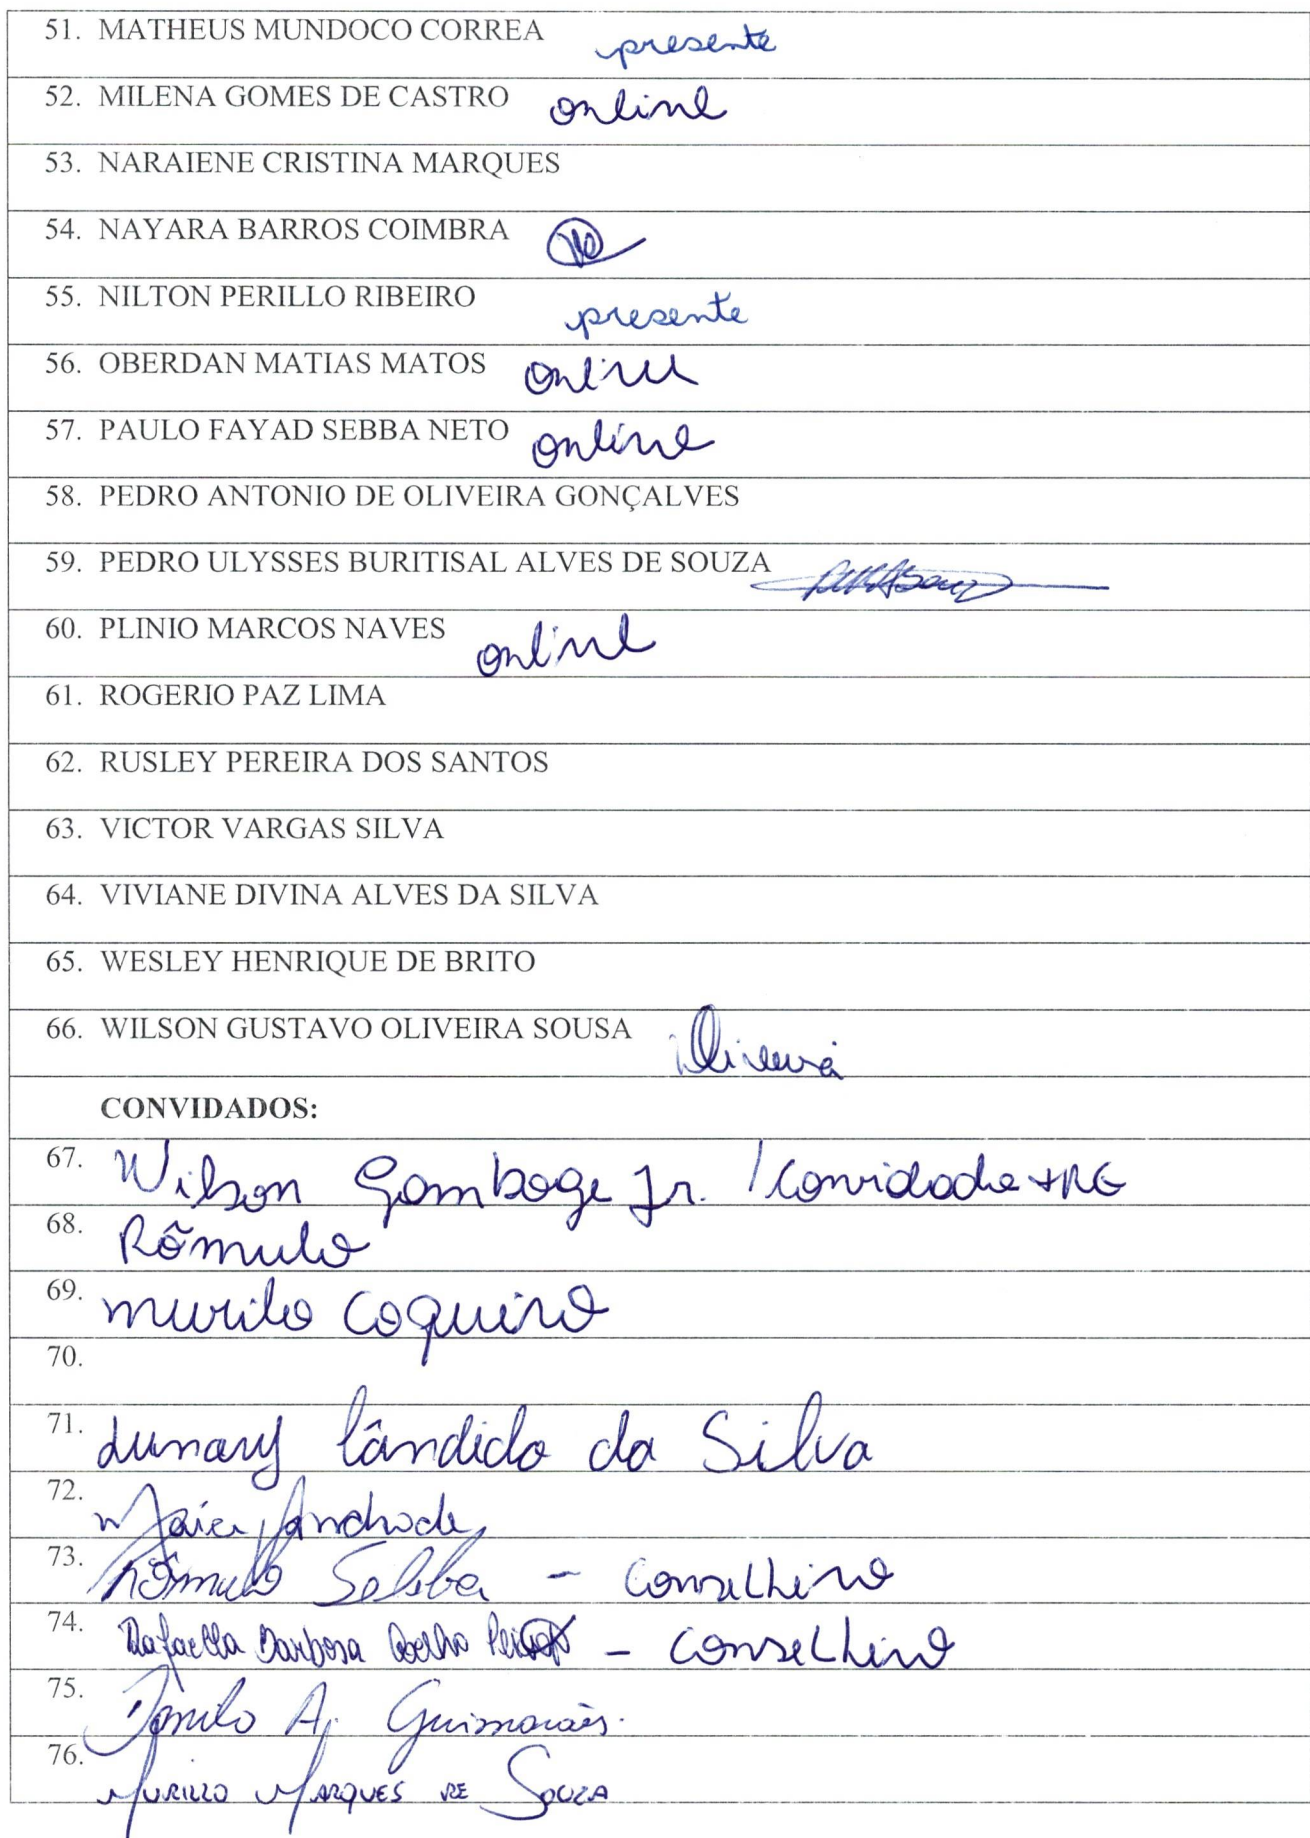 51. MATHEUS MUNDOCO CORREA presente
52. MILENA GOMES DE CASTRO online
53. NARAIENE CRISTINA MARQUES
54. NAYARA BARROS COIMBRA
55. NILTON PERILLO RIBEIRO presente
56. OBERDAN MATIAS MATOS online
57. PAULO FAYAD SEBBA NETO online
58. PEDRO ANTONIO DE OLIVEIRA GONÇALVES
59. PEDRO ULYSSES BURITISAL ALVES DE SOUZA
60. PLINIO MARCOS NAVES online
61. ROGERIO PAZ LIMA
62. RUSLEY PEREIRA DOS SANTOS
63. VICTOR VARGAS SILVA
64. VIVIANE DIVINA ALVES DA SILVA
65. WESLEY HENRIQUE DE BRITO
66. WILSON GUSTAVO OLIVEIRA SOUSA Oliveira
CONVIDADOS:
67. Wilson Gamboge Jr. / Convidado
68. Rômulo
69. murilo Coquiro
70.
71. Lunary Cândido da Silva
72. Andrade
73. Rômulo Sebba - Conselhiro
74. Rafaella Barbosa Coelho - Conselhiro
75. Danilo A. Guimarães.
76. MURILLO MARQUES DE SOUZA